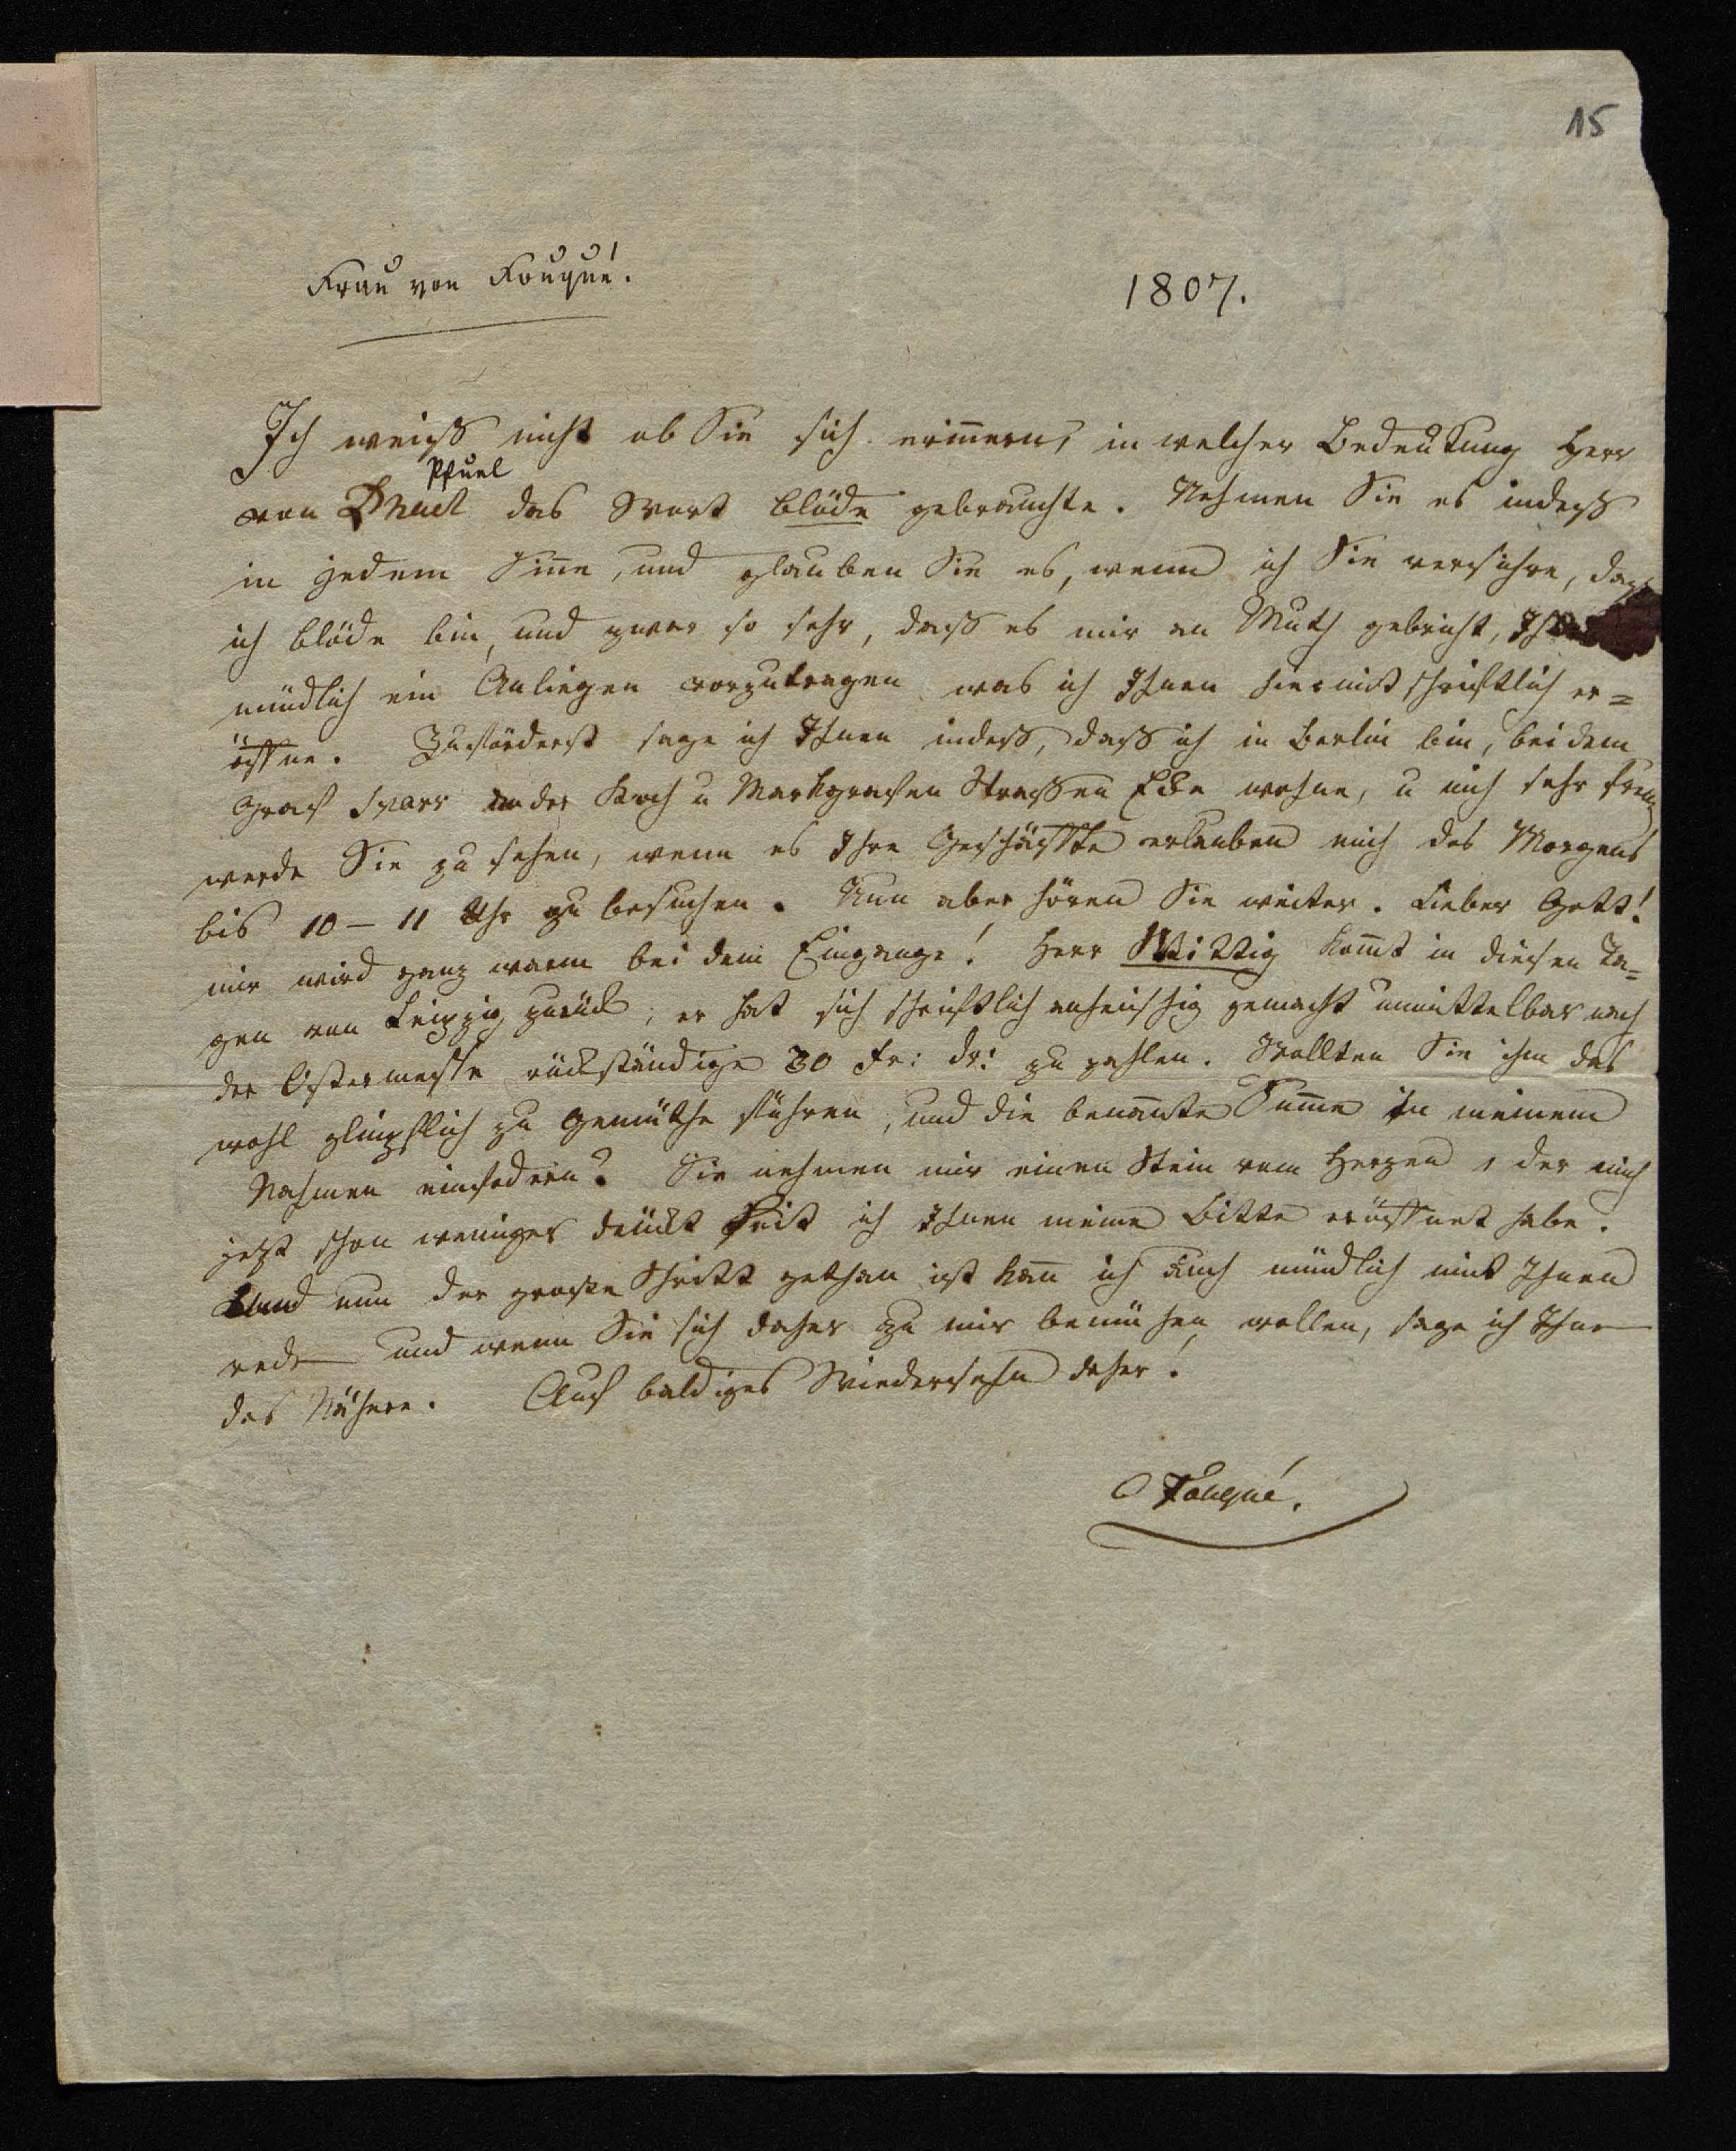 15
Frau von Fouqué.
1807.
Ich weiß nicht ob Sie sich erin̅ern, in welcher Bedeutung Herr
Pfuel
von Phuel das Wort blöde gebrauchte. Nehmen Sie es indeß
in jedem Sin̅e, und glauben Sie es, wenn ich Sie versichre, daß
ich blöde bin, und zwar so sehr, daß es mir an Muth gebricht,
mündlich ein Anliegen vorzutragen was ich Ihnen hiermit schriftlich er=
öffne. Zuförderst sage ich Ihnen indeß, daß ich in Berlin bin, bei dem
Graf Sparr an der Koch u Markgrafen Straßen Ecke wohne, u mich sehr freuen
werde Sie zu sehen, wenn es Ihre Geschäffte erlauben mich des Morgens
bis 10 – 11 Uhr zu besuchen. Nun aber hören Sie weiter. Lieber Gott!
mir wird ganz warm bei dem Eingange! Herr Wittig kom̅t in diesen Ta=
gen von Leipzig zurück; er hat sich schriftlich anheischig gemacht unmittelbar nach
der Ostermesse rückständige 30 Fr: dr: zu zahlen. Wollten Sie ihm das
wohl glimpflich zu Gemüthe führen, und die benan̅te Sum̅e in meinem
Nahmen einfodern? Sie nehmen mir einen Stein vom Herzen, der mich
jetzt schon weniger drückt seit ich Ihnen meine Bitte eröffnet habe.
Und nun der große Schritt gethan ist kan̅ ich auch mündlich mit Ihnen
reden und wenn Sie sich daher zu mir bemühen wollen, sage ich Ihnen
das Nähere. Auf baldiges Wiedersehn daher!
Fouqué.